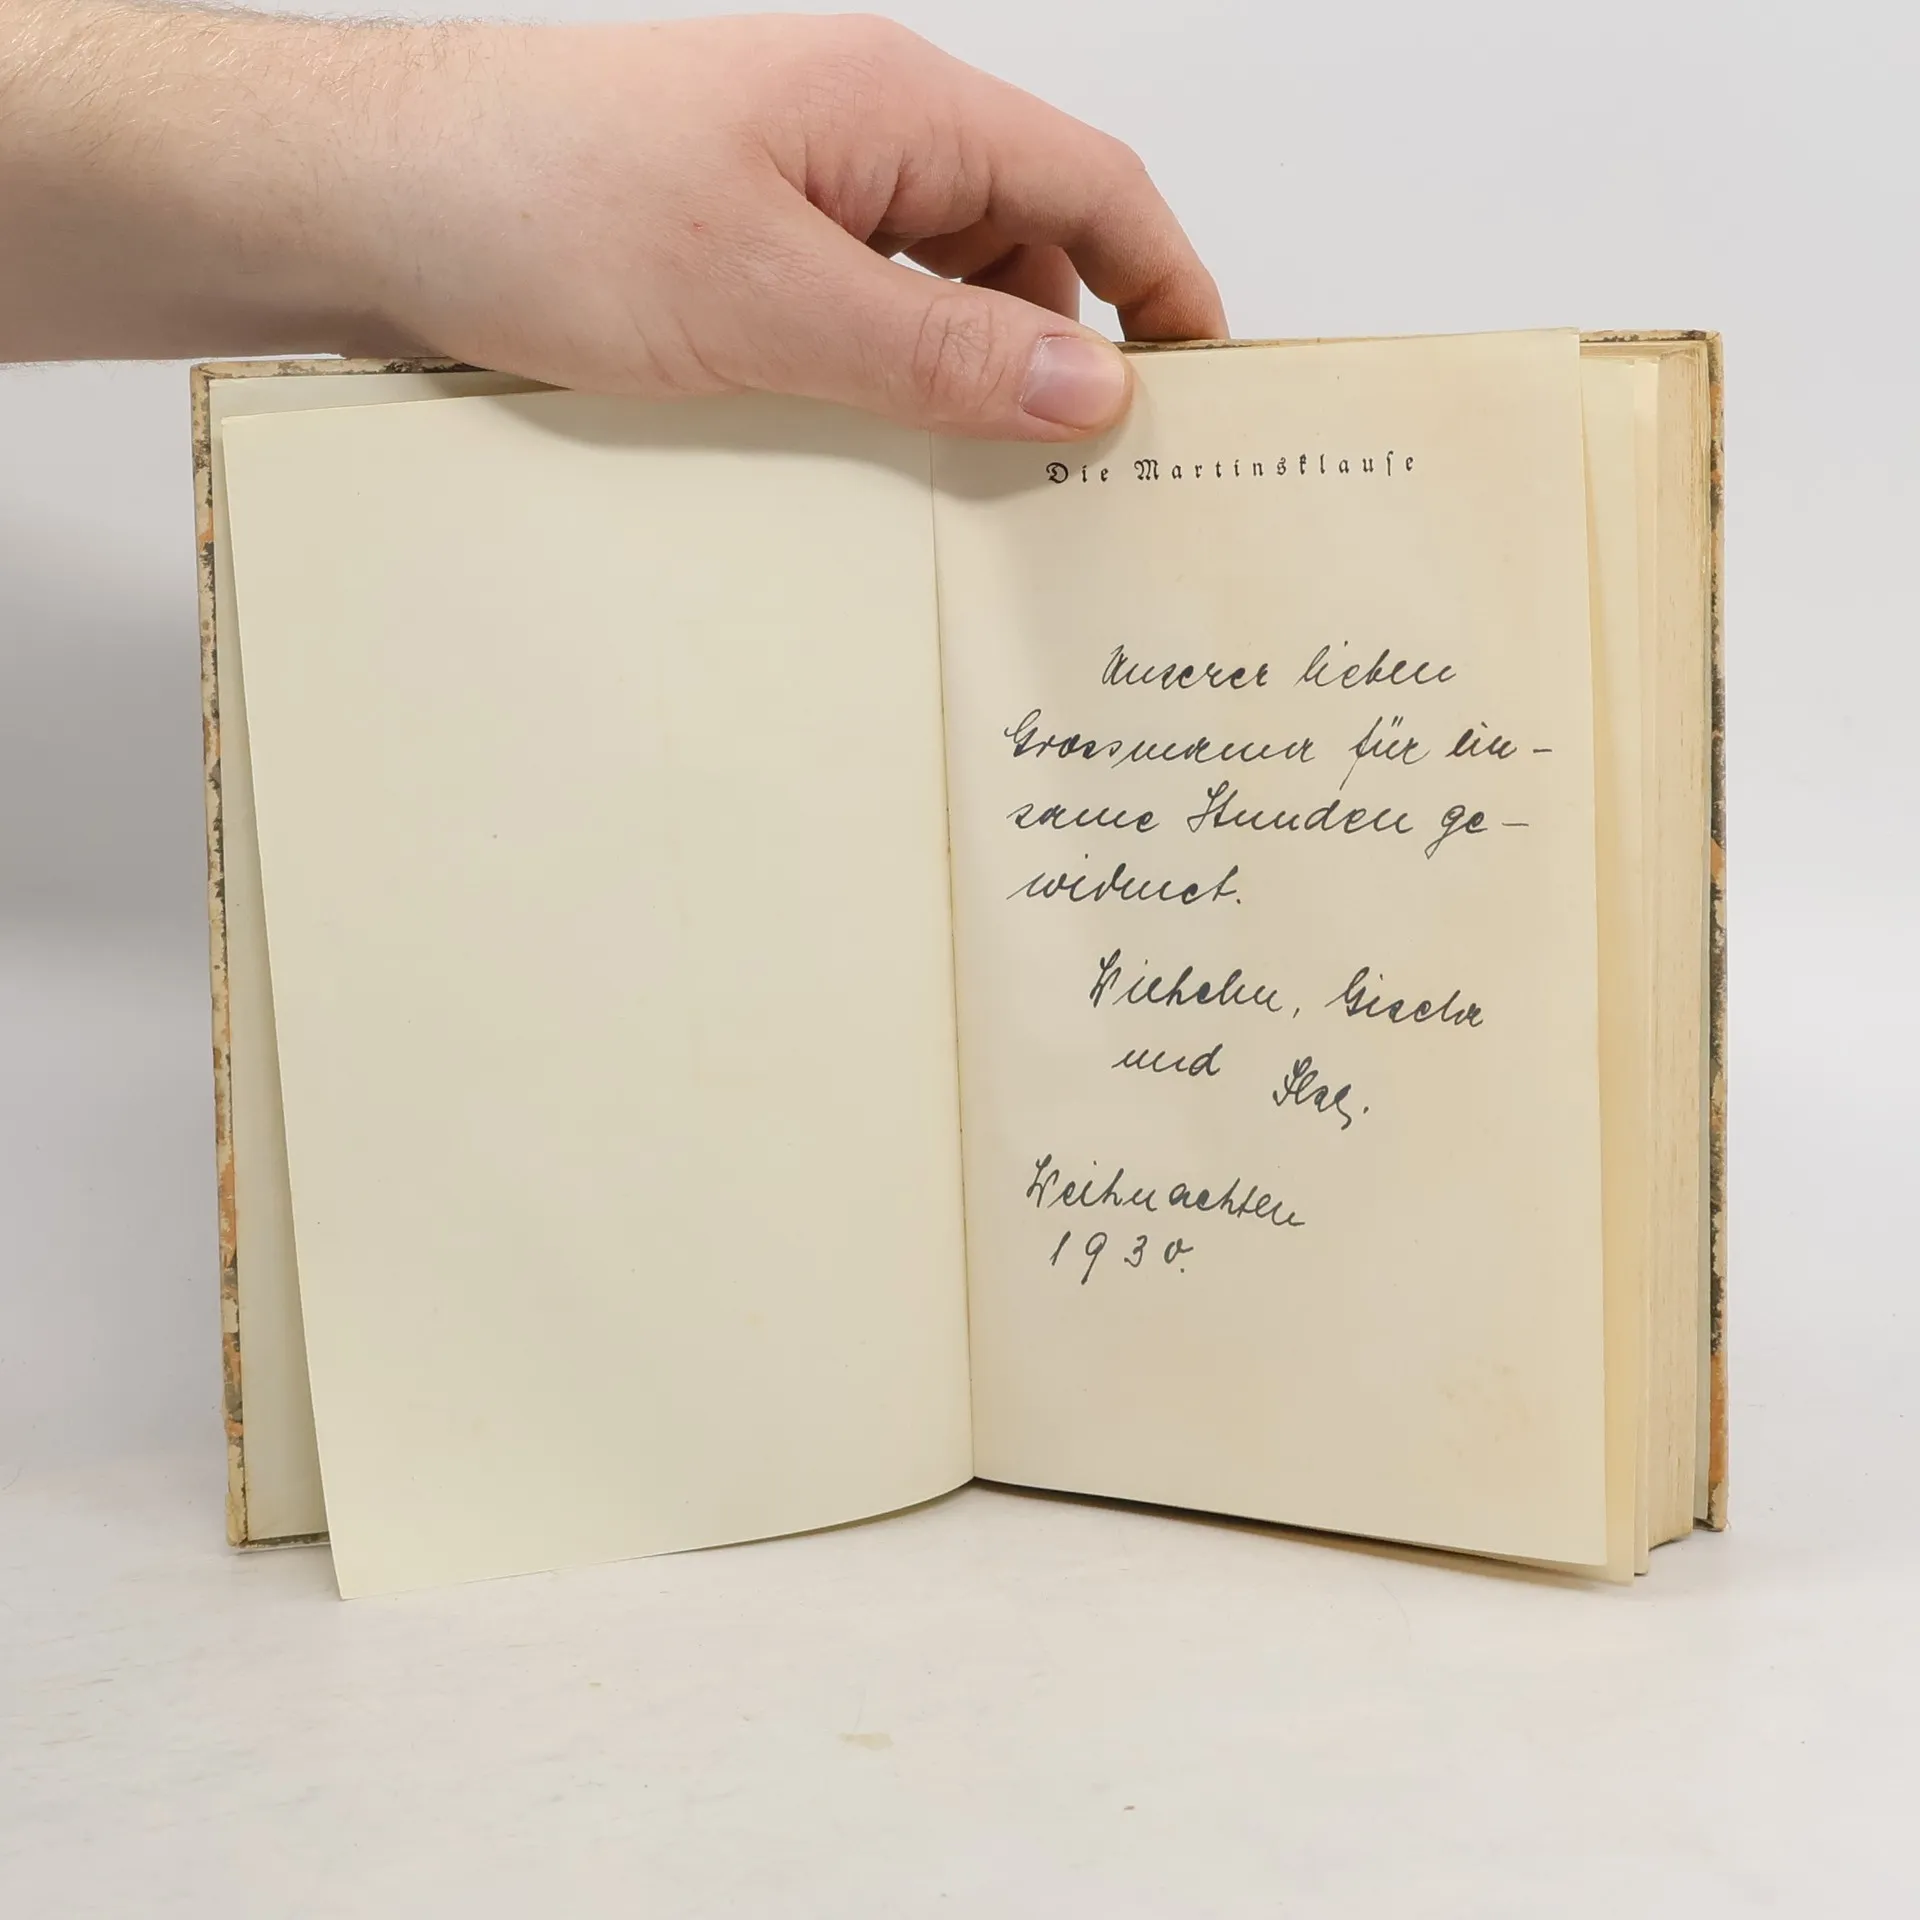 Die Martinsklause
Unserer lieben
Grossmama für ein-
same Stunden ge-
widmet.
Wilhelm, Gisela
und
Weihnachten
1930.